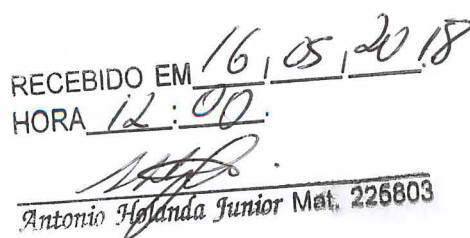 RECEBIDO EM 16, 05, 2018
HORA 12:00.
Antonio Holanda Junior Mat. 226803